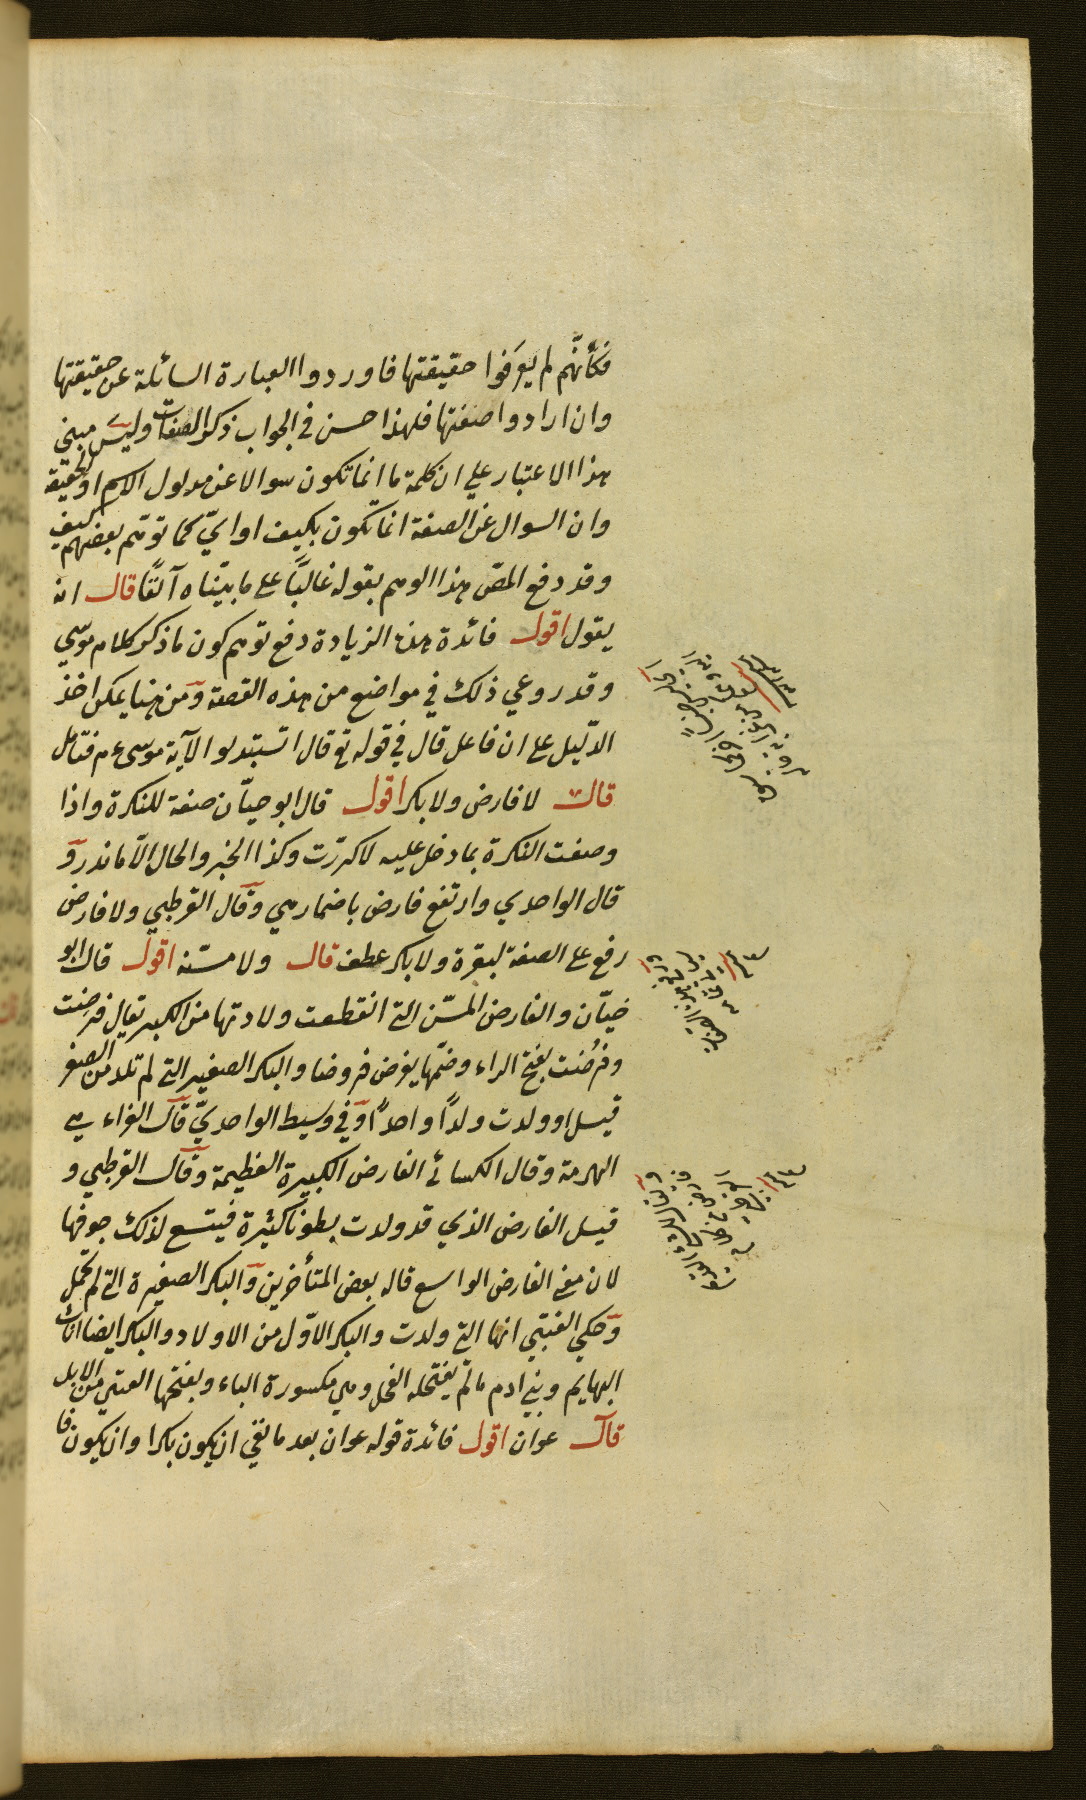 فكأنّهم لم يعرفوا حقيقتها فاوردوا العبارة السائلة عن حقيقتها
وان ارادوا صفتها فلهذا حسن في الجواب ذكر الصفات وليس مبنى
هذا الاعتبار على ان كلمة ما انما تكون سوالا عن مدلول الاسم او الحقيقة
وان السوال عن الصفة انما تكون بكيف او ايّ كما توهّم بعضهم
وقد دفع المصّ هذا الوهم بقوله غالبًا على ما بيّناه آنفًا قال انه
يقول اقول فائدة هذه الزيادة دفع توهم كون ما ذكر كلام موسى
وقد روعي ذلك في مواضع من هذه القصة ومن هنا يمكن اخذ
الدّليل على ان فاعل قال في قوله تع قال اتستبدلوا الآية موسى عم فتامل
قال لا فارض ولا بكر اقول قال ابو حيّان صفة للنكرة واذا
وصفت النكرة بما دخل عليه لا كررّت وكذا الخبر والحال الّا ما ندر و
قال الواحدي وارتفع فارض باضمار هي وقال القرطبي ولا فارض
رفع على الصفة لبقرة ولا بكر عطف قال ولا مسنّة اقول قال ابو
حيّان والفارض المسّن التي انقطعت ولادتها من الكبر يقال فرضت
وفرُضت بفتح الراء وضمّها يفرض فروضا والبكر الصغير التي لم تلد من الصغر
قيل او ولدت ولدًا واحدًا وفي وسيط الواحديّ قال الفراء هي
الهرمة وقال الكسائي الفارض الكبيرة العظيمة وقال القرطبي و
قيل الفارض الذي قد ولدت بطونا كثيرة فيتسع لذلك جوفها
لان معنى الفارض الواسع قاله بعض المتأخرين والبكر الصغيرة التي لم تحمل
وحكي القتبي انها التي ولدت والبكر الاوّل من الاولاد والبكر ايضا اناث
البهايم وبني ادم ما لم يفتحله الفحل وهي مكسورة الباء وبفتحها الفتي من الابل
قال عوان اقول فائدة قوله عوان بعد ما نفي ان يكون بكرا وان يكون فا